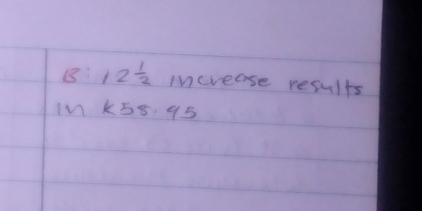 B: 12 ½ increase results
in K58.95